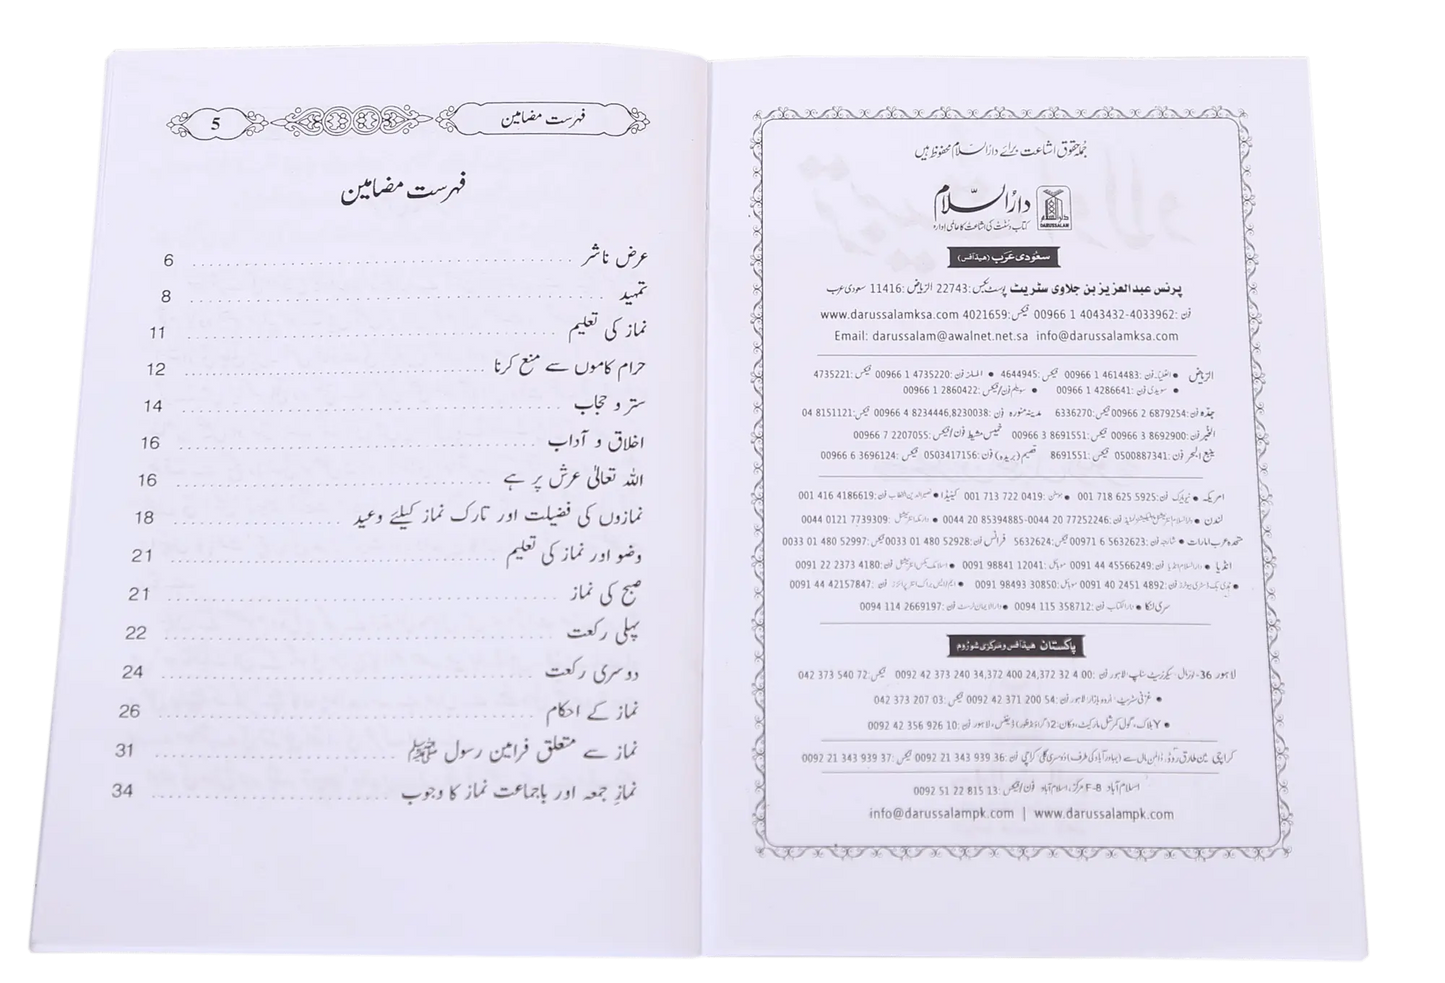 جُملہ حقوقِ اشاعت برائے دارُالسّلام محفوظ ہیں
دارُالسّلام
DARUSSALAM
کتاب و سنّت کی اشاعت کا عالمی ادارہ
سعودی عَرَب (ہیڈآفس)
پرنس عبدالعزیز بن جلاوی سٹریٹ پوسٹ بکس: 22743 الریاض: 11416 سعودی عرب
فون: 00966 1 4043432-4033962 فیکس: 4021659 www.darussalamksa.com
Email: darussalam@awalnet.net.sa info@darussalamksa.com
الریاض • العلیا۔ فون: 00966 1 4614483 فیکس: 4644945 • الملز۔ فون: 00966 1 4735220 فیکس: 4735221
• سویدی فون: 00966 1 4286641 • سویلم فون/فیکس: 00966 1 2860422
جدّہ فون: 00966 2 6879254 فیکس: 6336270 مدینہ منورہ فون: 00966 4 8234446,8230038 فیکس: 04 8151121
الخُبر فون: 00966 3 8692900 فیکس: 00966 3 8691551 خمیس مشیط فون/فیکس: 00966 7 2207055
ینبع البحر فون: 0500887341 فیکس: 8691551 قصیم (بریدہ) فون: 0503417156 فیکس: 00966 6 3696124
امریکہ • نیویارک فون: 001 718 625 5925 • ہوسٹن: 001 713 722 0419 کینیڈا • فون: 001 416 4186619
لندن • فون: 0044 20 77252246-0044 20 85394885 • فون: 0044 0121 7739309
متحدہ عرب امارات • شارجہ فون: 00971 6 5632623 فیکس: 5632624 فرانس فون: 0033 01 480 52928 فیکس: 0033 01 480 52997
انڈیا • دارالسلام انڈیا فون: 0091 44 45566249 موبائل: 0091 98841 12041 • فون: 0091 22 2373 4180
• فون: 0091 40 2451 4892 موبائل: 0091 98493 30850 • فون: 0091 44 42157847
سری لنکا • دارالکتاب فون: 0094 115 358712 • دارالایمان ٹرسٹ فون: 0094 114 2669197
پاکستان ہیڈآفس و مرکزی شوروم
لاہور 36- لوئرمال، سیکرٹریٹ سٹاپ، لاہور فون: 0092 42 373 240 34,372 400 24,372 32 4 00 فیکس: 042 373 540 72
• غزنی سٹریٹ، اُردو بازار، لاہور فون: 0092 42 371 200 54 فیکس: 042 373 207 03
• Y بلاک، گول کمرشل مارکیٹ، دکان: 2 (گراؤنڈ فلور) ڈیفنس، لاہور فون: 0092 42 356 926 10
کراچی مین طارق روڈ، ڈالمن مال سے (بہادرآباد کی طرف) دوسری گلی کراچی فون: 0092 21 343 939 36 فیکس: 0092 21 343 939 37
اسلام آباد F-8 مرکز، اسلام آباد فون/فیکس: 0092 51 22 815 13
info@darussalampk.com | www.darussalampk.com
فہرست مضامین 5
فہرست مضامین
عرض ناشر 6
تمہید 8
نماز کی تعلیم 11
حرام کاموں سے منع کرنا 12
ستر و حجاب 14
اخلاق و آداب 16
اللہ تعالیٰ عرش پر ہے 16
نمازوں کی فضیلت اور تارک نماز کیلئے وعید 18
وضو اور نماز کی تعلیم 21
صبح کی نماز 21
پہلی رکعت 22
دوسری رکعت 24
نماز کے احکام 26
نماز سے متعلق فرامین رسول ﷺ 31
نمازِ جمعہ اور باجماعت نماز کا وجوب 34